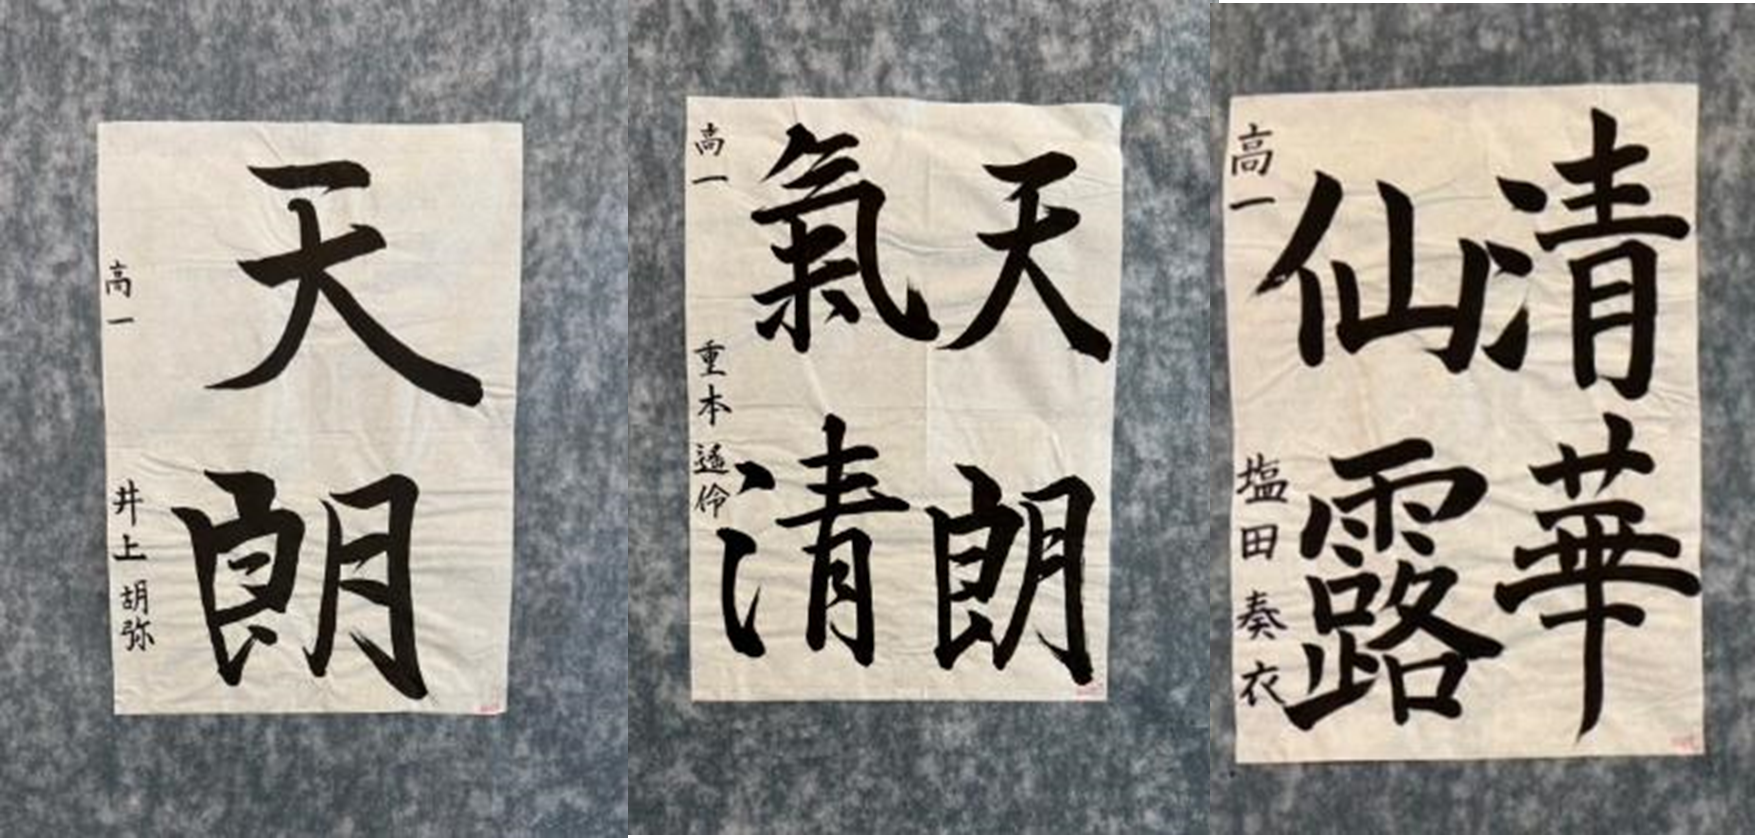 天朗
高一 井上 胡弥
天朗
氣清
高一 重本 遥伶
清華
仙露
高一 塩田 奏衣